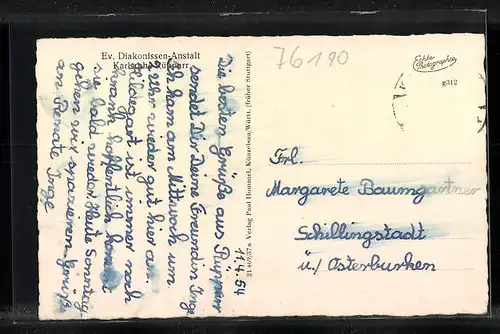 Ev. Diakonissen-Anstalt
Karlsruhe-Rüppurr
76190
Echte
Photographie
g312
11.4.54
Die besten Grüße aus Rüppurr
sendet Dir Deine Freundin Inge
Ich kam am Mittwoch um
Uhr wieder gut hier an.
Hildegart ist immer noch
krank hoffentlich kommt
sie bald wieder. Heute Sonntag
gehen wir spazieren. Grüße
an Renate Inge
21 4073/7 a Verlag Paul Hommel, Künzelsau/Württ. (früher Stuttgart)
Frl.
Margarete Baumgartner
Schillingstadt
ü./Osterburken